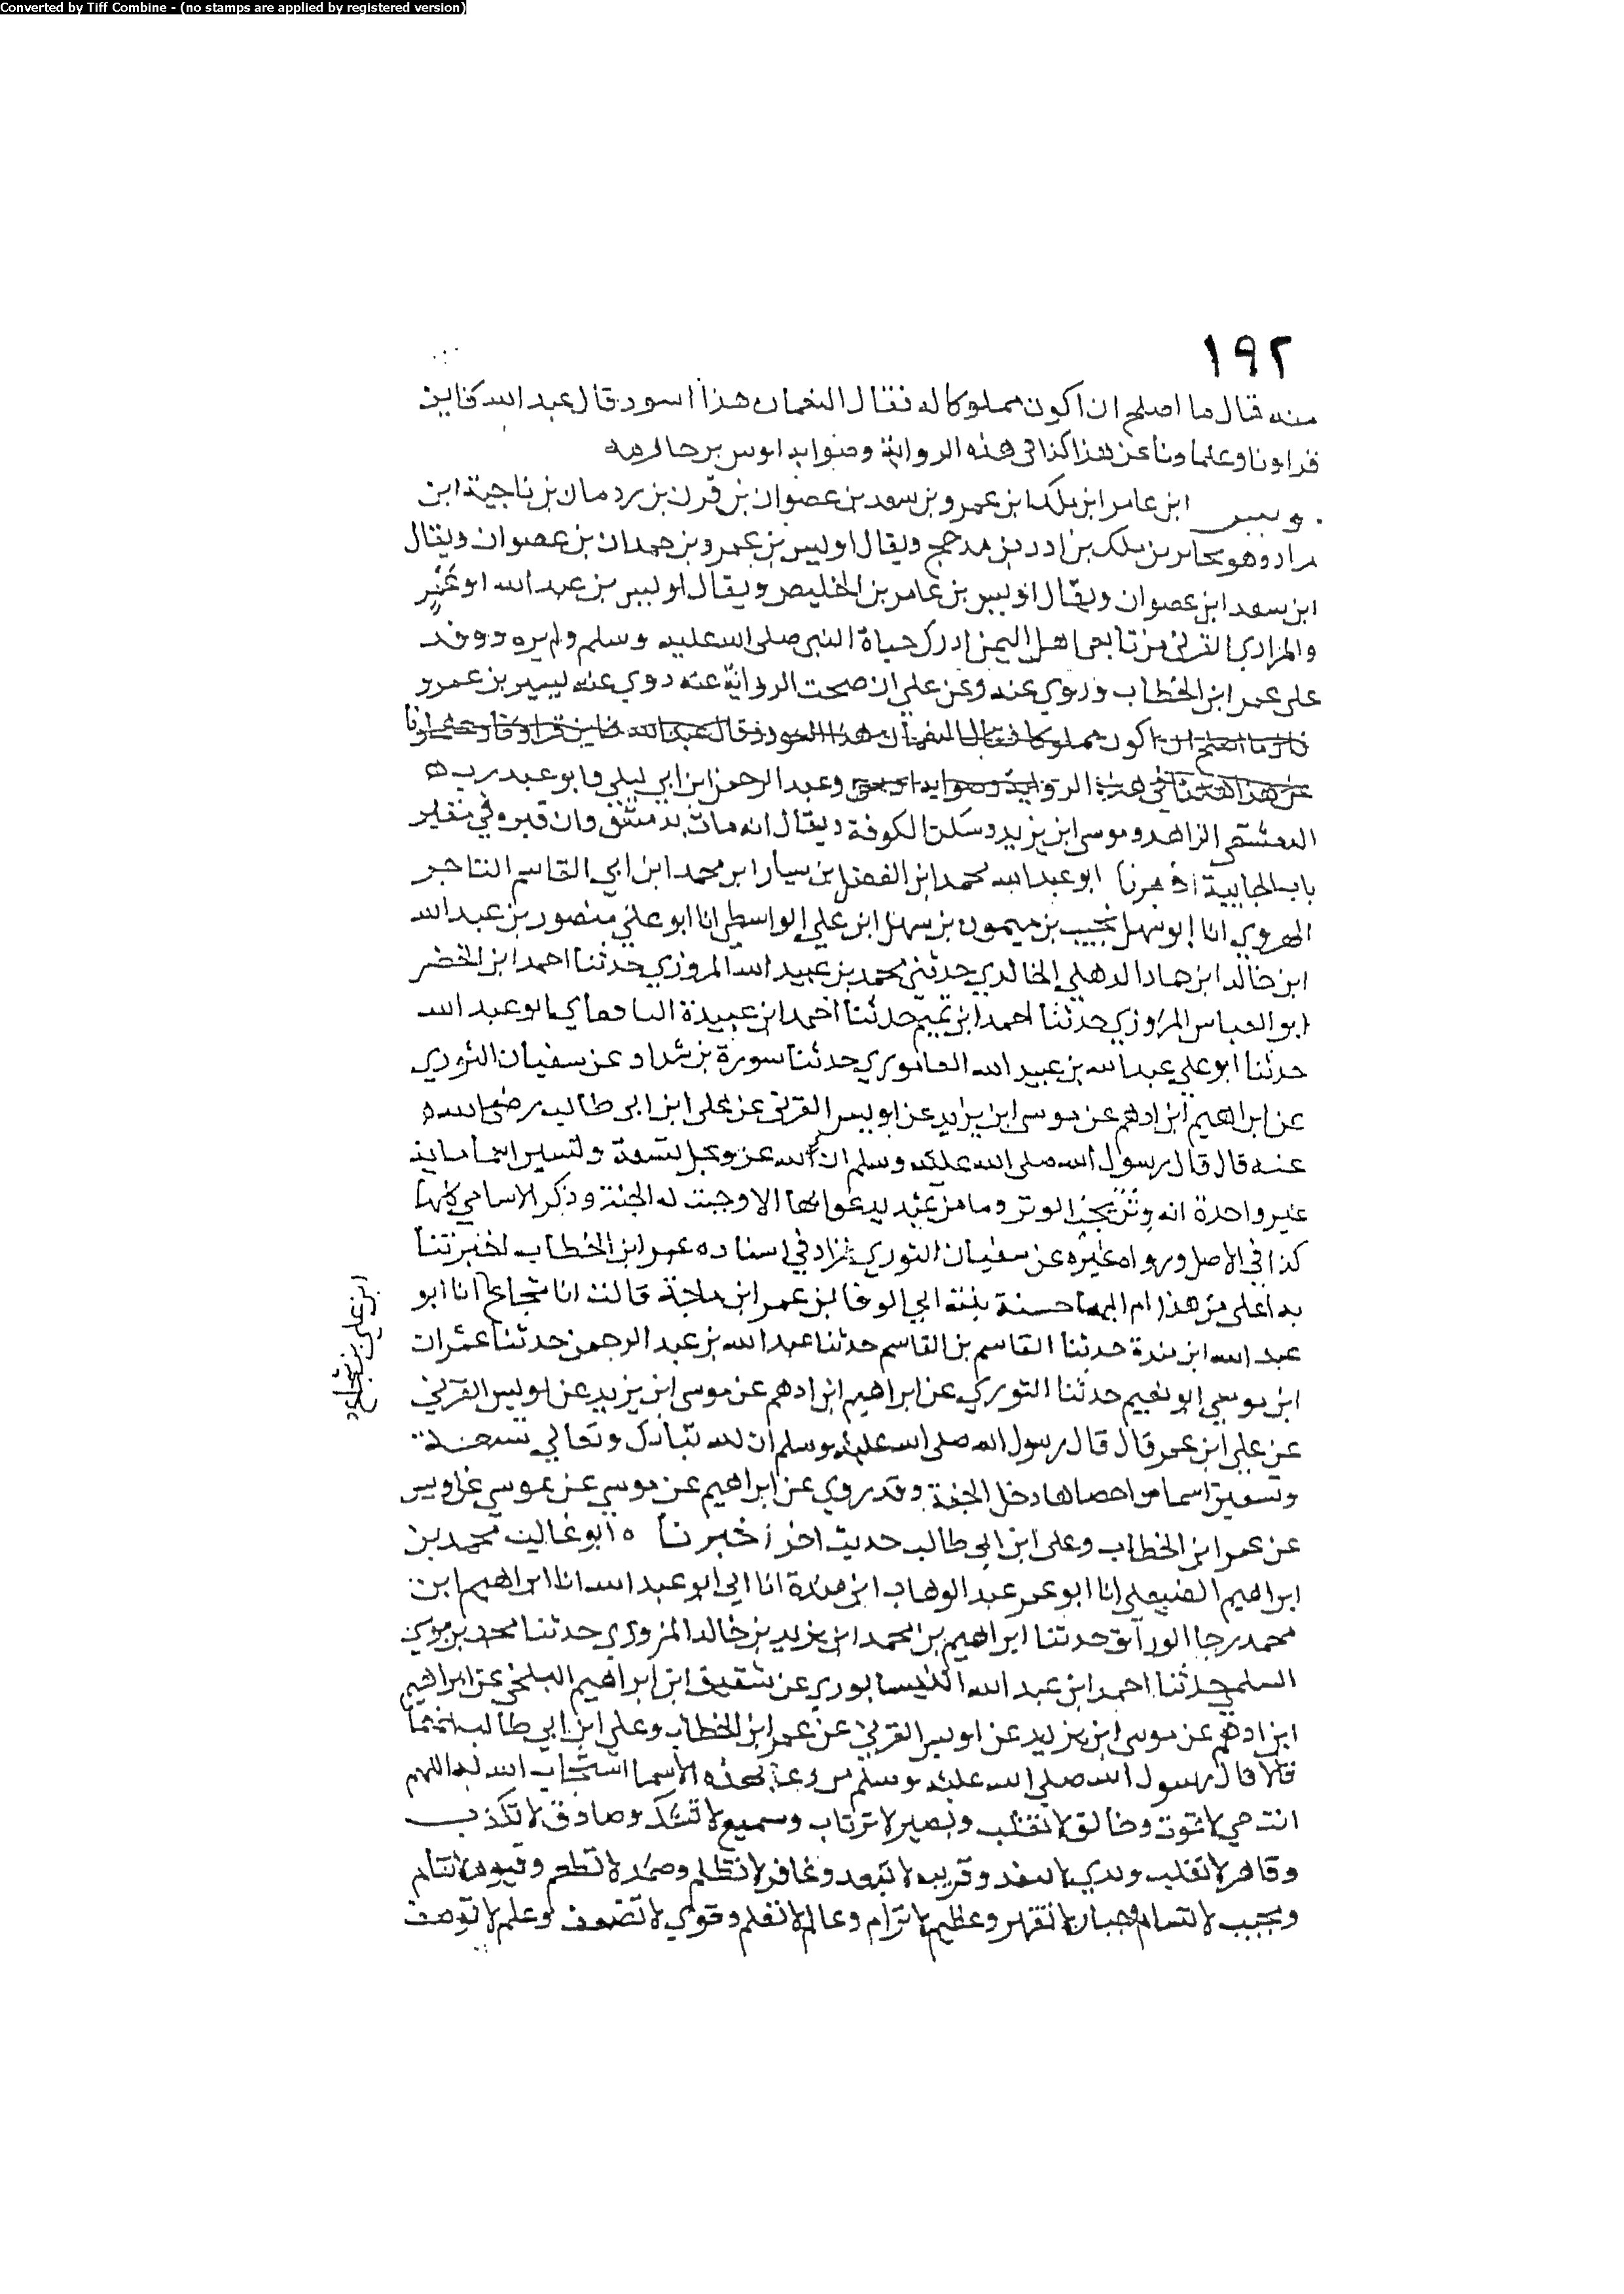 Converted by Tiff Combine - (no stamps are applied by registered version)
١٩٢
منه قال ما اصلح ان اكون مملوكا له فقال النعمان هذا اسود قال عبد الله فاين
قراونا وعلماونا عن هذا كذا في هذه الرواية وصوابه اوس
ابن عامر ابن ملك ابن عمرو بن سعد بن عصوان بن قرن بن ردمان بن ناجية ابن
مراد وهو يحابر بن ملك بن ادد بن مدحج ويقال اوليس بن عمرو بن حمدان بن عصوان ويقال
ابن سعد ابن عصوان ويقال اويس بن عامر بن الخليص ويقال اويس بن عبد الله ابو
والمرادي القرني من تابعي اهل اليمن ادرك حياة النبي صلى الله عليه وسلم ولم يره ووفد
على عمر ابن الخطاب وروي عنه وعن علي ان صحت الرواية عنه روي عنه يسير بن عمرو
اكون مملوكا فقال النعمان هذا اسود وقال عبد الله فاين
الرواية وصوابه وعبد الرحمن ابن ابي ليلى وابو عبد ربه
الدمشقي الزاهد وموسى ابن يزيد وسكن الكوفة ويقال انه مات بدمشق وان قبره في مقبر
باب الجابية اخبرنا ابو عبد الله محمد ابن الفضل بن سيار ابن محمد ابن ابي القاسم التاجر
الهروي انا ابو سهل نجيب بن ميمون بن سهل ابن علي الواسطي انا ابو علي منصور بن عبد الله
ابن خالد ابن حماد الدهلي الخالدي حدثني محمد بن عبيد الله المروزي حدثنا احمد ابن الخضر
ابو العباس المروزي حدثنا احمد ابن تميم حدثنا احمد ابن عبيدة ابو عبد الله
حدثنا ابو علي عبد الله بن عبيد الله حدثنا سورة بن شداد عن سفيان الثوري
عن ابراهيم ابن ادهم عن موسى ابن يزيد عن اويس القرني عن علي ابن ابي طالب رضى الله
عنه قال قال رسول الله صلى الله عليه وسلم ان لله عز وجل تسعة وتسعين اسما ماية
غير واحدة انه وتر يحب الوتر وما من عبد يدعو بها الا وجبت له الجنة وذكر الاسامي كلها
كذا في الاصل ورواه غيره عن سفيان الثوري فزاد في اسناده عمر ابن الخطاب اخبرتنا
به اعلى من هذا ام البها حسنة بنت ابي الوفا بن عمر ابن ماجة قالت انا شجاع انا ابو
ابن علي بن شجاع
عبد الله ابن مندة حدثنا القاسم بن القاسم حدثنا عبد الله بن عبد الرحمن حدثنا عمران
ابن موسي ابو نعيم حدثنا الثوري عن ابراهيم ابن ادهم عن موسى ابن يزيد عن اويس القرني
عن علي ابن عمر قال قال رسول الله صلى الله عليه وسلم ان لله تبارك وتعالي تسعة
وتسعين اسما من احصاها دخل الجنة وقد روي عن ابراهيم عن موسي عن موسي عن اويس
عن عمر ابن الخطاب وعلى ابن ابي طالب حديث اخر اخبرنا ابو غالب محمد بن
ابراهيم انا ابو عمر عبد الوهاب ابن مندة انا ابي ابو عبد الله انا ابراهيم ابن
محمد رجا الوراق حدثنا ابراهيم بن محمد ابن يزيد بن خالد المروزي حدثنا محمد بن موسى
السلمي حدثنا احمد ابن عبد الله النيسابوري عن شقيق ابن ابراهيم البلخي عن ابراهيم
ابن ادهم عن موسى ابن يزيد عن اويس القرني عن عمر ابن الخطاب وعلى ابن ابي طالب
قالا قال رسول الله صلى الله عليه وسلم من دعا بهذه الاسما استجاب الله له اللهم
انت حي لا تموت وخالق لا تغلب وبصير لا ترتاب وسميع لا تشك وصادق لا تكذب
وقاهر لا تغلب وبدي لا تنفد وقريب لا تبعد وغافر لا تظلم وصمد لا تطعم وقيوم لا تنام
ومجيب لا تسام وجبار لا تقهر وعظيم لا ترام وعالم لا تعلم وقوي لا تضعف وعلم لا توصف